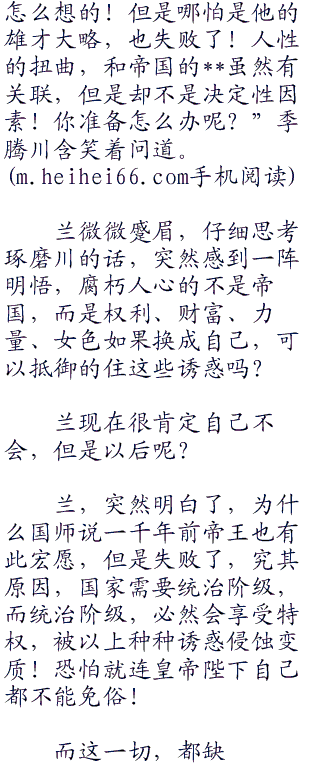 怎么想的！但是哪怕是他的
雄才大略，也失败了！人性
的扭曲，和帝国的**虽然有
关联，但是却不是决定性因
素！你准备怎么办呢？”季
腾川含笑着问道。
(m.heihei66.com手机阅读)
兰微微蹙眉，仔细思考
琢磨川的话，突然感到一阵
明悟，腐朽人心的不是帝
国，而是权利、财富、力
量、女色如果换成自己，可
以抵御的住这些诱惑吗？
兰现在很肯定自己不
会，但是以后呢？
兰，突然明白了，为什
么国师说一千年前帝王也有
此宏愿，但是失败了，究其
原因，国家需要统治阶级，
而统治阶级，必然会享受特
权，被以上种种诱惑侵蚀变
质！恐怕就连皇帝陛下自己
都不能免俗！
而这一切，都缺